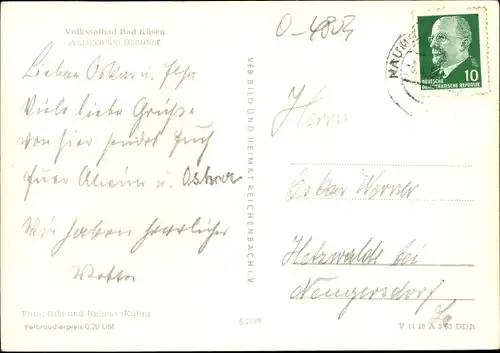 Volkssolbad Bad Kösen
Anlagen am Bahnhof
O-4803
NAUM
10
DEUTSCHE
DEMOKRATISCHE REPUBLIK
Lieber Oskar u. Ilse
Viele liebe Grüße
von hier sendet Euch
Euer Alwin u. Oskar
Wir haben herrliches
Wetter
VEB BILD UND HEIMAT REICHENBACH I. V.
Herrn
Oskar Werner
Hetzwalde bei
Neugersdorf
Foto: Hilo und Reinox (Köhn)
Verbraucherpreis 0,20 DM
V 11 28 A 3/63 DDR